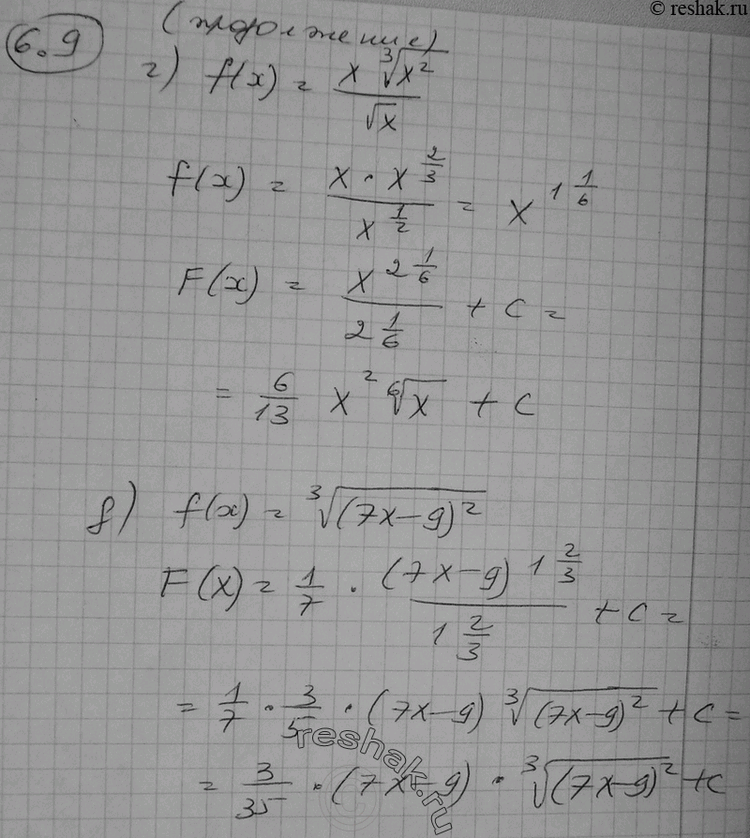 © reshak.ru
6.9 (продолжение)
г) f(x) = x ∛(x²) / √x
f(x) = x · x^(2/3) / x^(1/2) = x^(1 1/6)
F(x) = x^(2 1/6) / (2 1/6) + C =
= 6/13 x² ⁶√x + C
д) f(x) = ∛((7x-9)²)
F(x) = 1/7 · (7x-9)^(1 2/3) / (1 2/3) + C =
= 1/7 · 3/5 · (7x-9) ∛((7x-9)²) + C =
= 3/35 · (7x-9) · ∛((7x-9)²) + C
reshak.ru